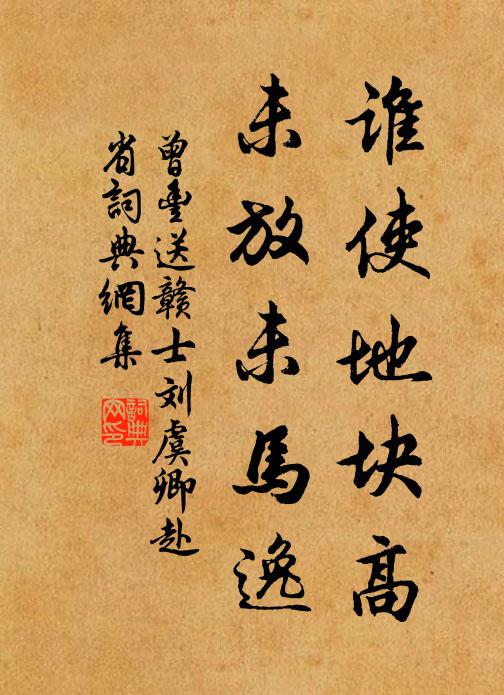 谁使地块高
未放未馬逸
曾豐送赣士刘虞卿赴
省詞典網集
詞典
网印